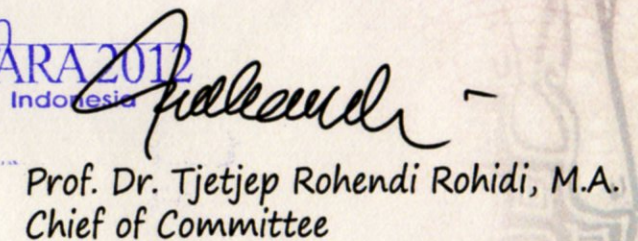 ARA 2012
Indonesia
Prof. Dr. Tjetjep Rohendi Rohidi, M.A.
Chief of Committee